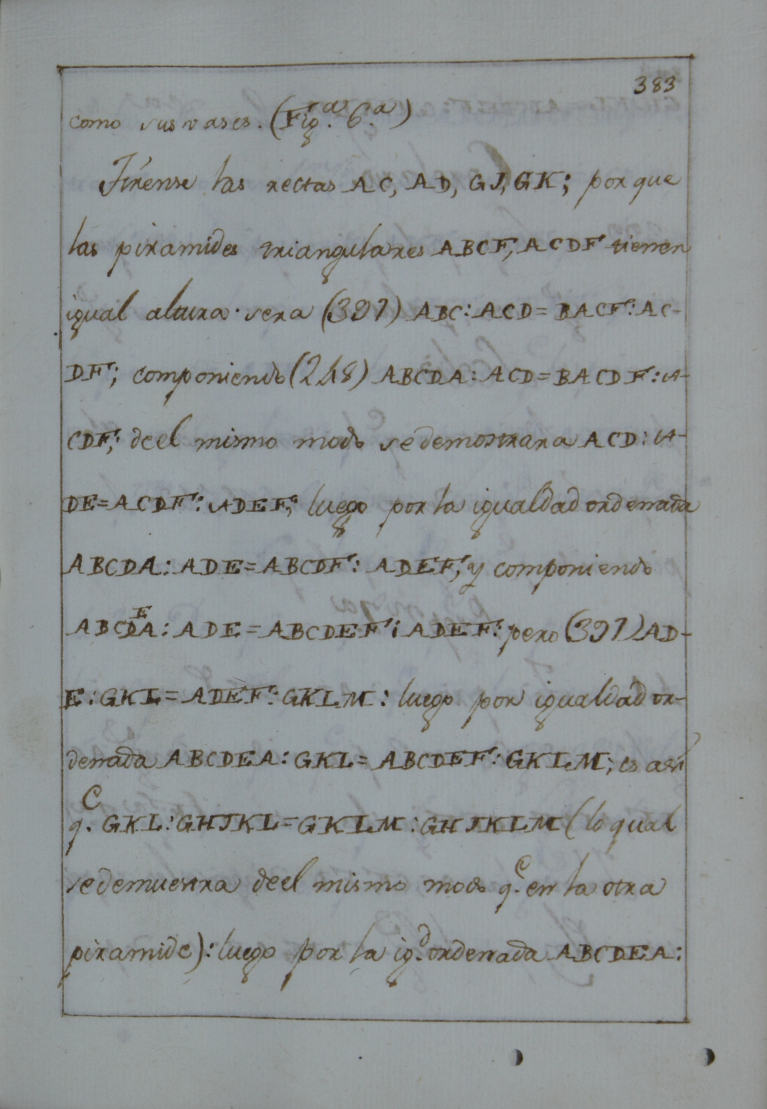 383
como sus vases. (Fig.ras 6.a)
Tirense las rectas AC, AD, GJ, GK; por que
las piramides triangulares ABCF, ACDF tienen
igual altura sera (397) ABC: ACD = BACF: AC-
DF; componiendo (248) ABCDA: ACD = BACDF: A-
CDF; de el mismo modo se demostrara ACD: A-
DE = ACDF: ADEF; luego por la igualdad ordenada
ABCDA: ADE = ABCDF: ADEF; y componiendo
ABCDEA: ADE = ABCDEF: ADEF: pero (397) AD-
E: GKL = ADEF: GKLM: luego por igualdad or-
denada ABCDEA: GKL = ABCDEF: GKLM; es asi
q.e GKL: GHJKL = GKLM: GHJKLM (lo qual
se demuestra de el mismo modo q.e en la otra
piramide): luego por la ig.d ordenada ABCDEA: